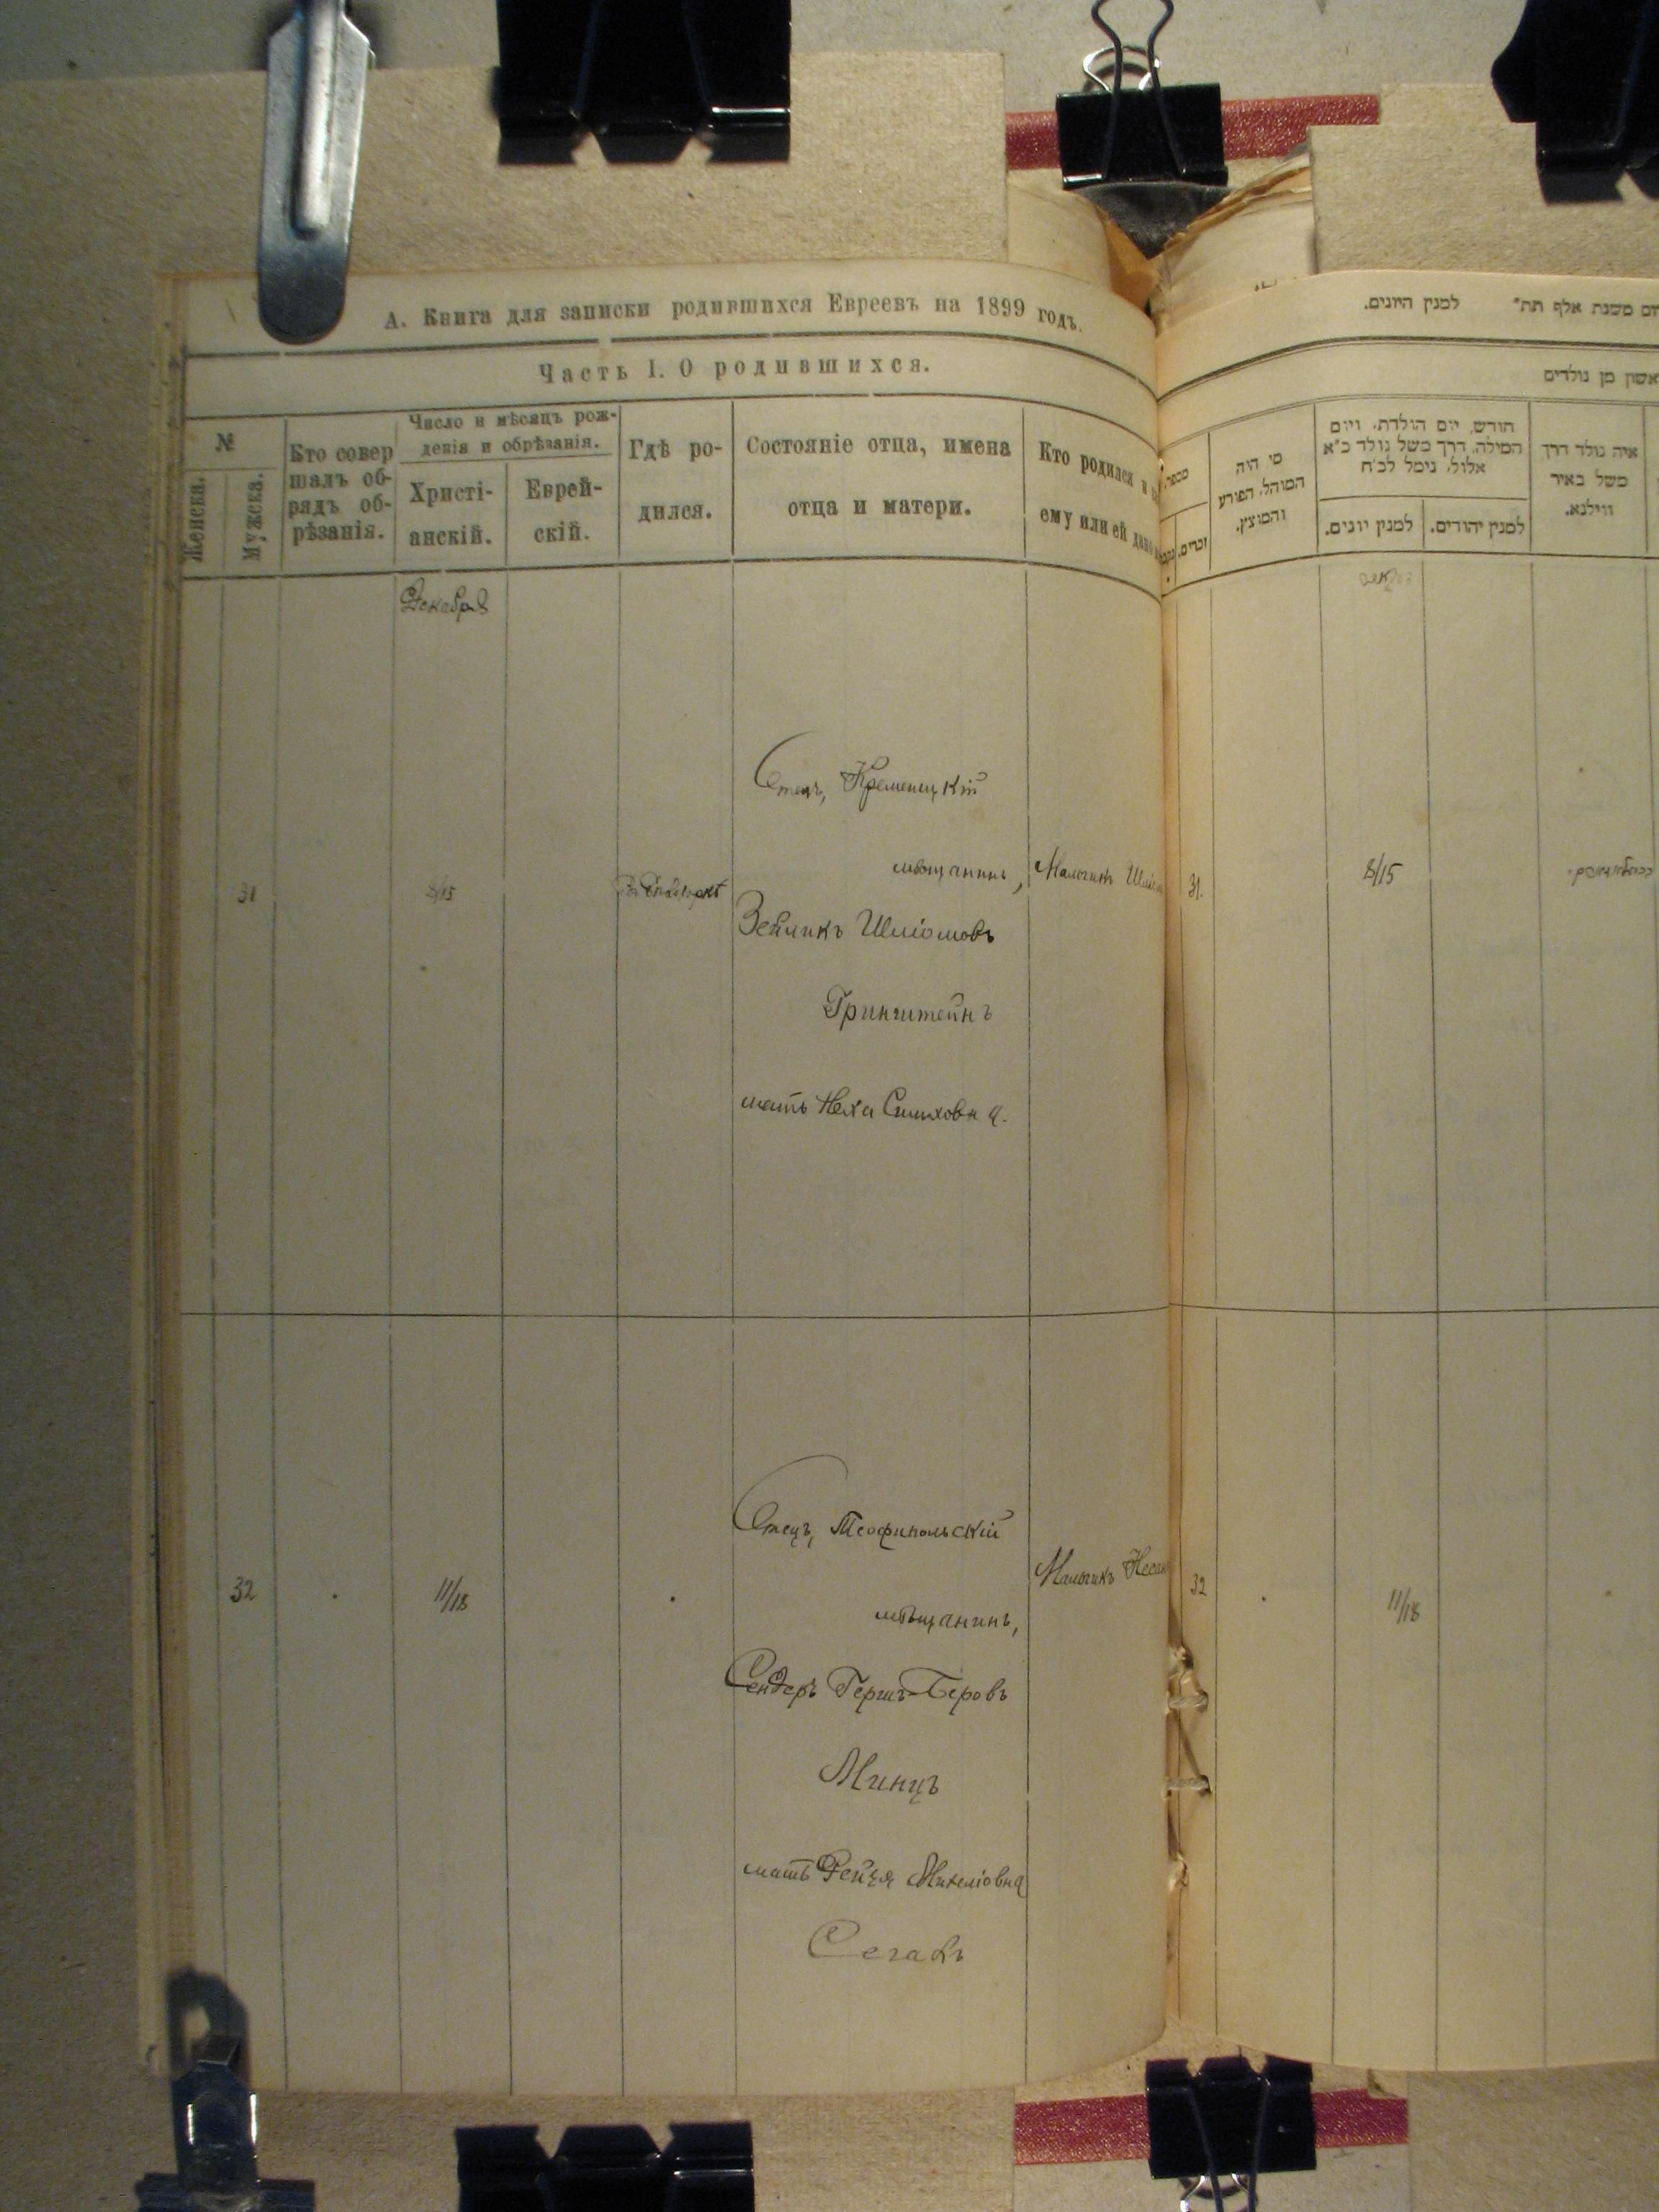 А. Книга для записки родившихся Евреевъ на 1899 годъ.
Часть I. О родившихся.
№
Женска.
Мужеска.
Кто совер
шалъ об-
рядъ об-
рѣзанія.
Число и мѣсяцъ рож-
денія и обрѣзанія.
Христі-
анскій.
Еврей-
скій.
Гдѣ ро-
дился.
Состояніе отца, имена
отца и матери.
Кто родился и
ему или ей дано
Декабрь
31
8/15
Отецъ, Кременецкій
мѣщанинъ,
Зейликъ Шліомовъ
Гринштейнъ
мать Неха Симховна.
Мальчикъ
32
11/18
Отецъ, Теофипольскій
мѣщанинъ,
Сендеръ Гершъ-Беровъ
Минцъ
мать Рейзя
Сегалъ
Мальчикъ
למנין היונים.
משנת אלף תת"
מן נולדים
מספר.
זכרים.
מי היה
המוהל, הפורע
והמוצץ.
חודש, יום הולדת, ויום
המילה, דרך משל נולד כ"א
אלול, נימל לכ"ח
למנין יונים.
למנין יהודים.
איה נולד דרך
משל באיר
ווילנא.
31.
8/15
32
11/18